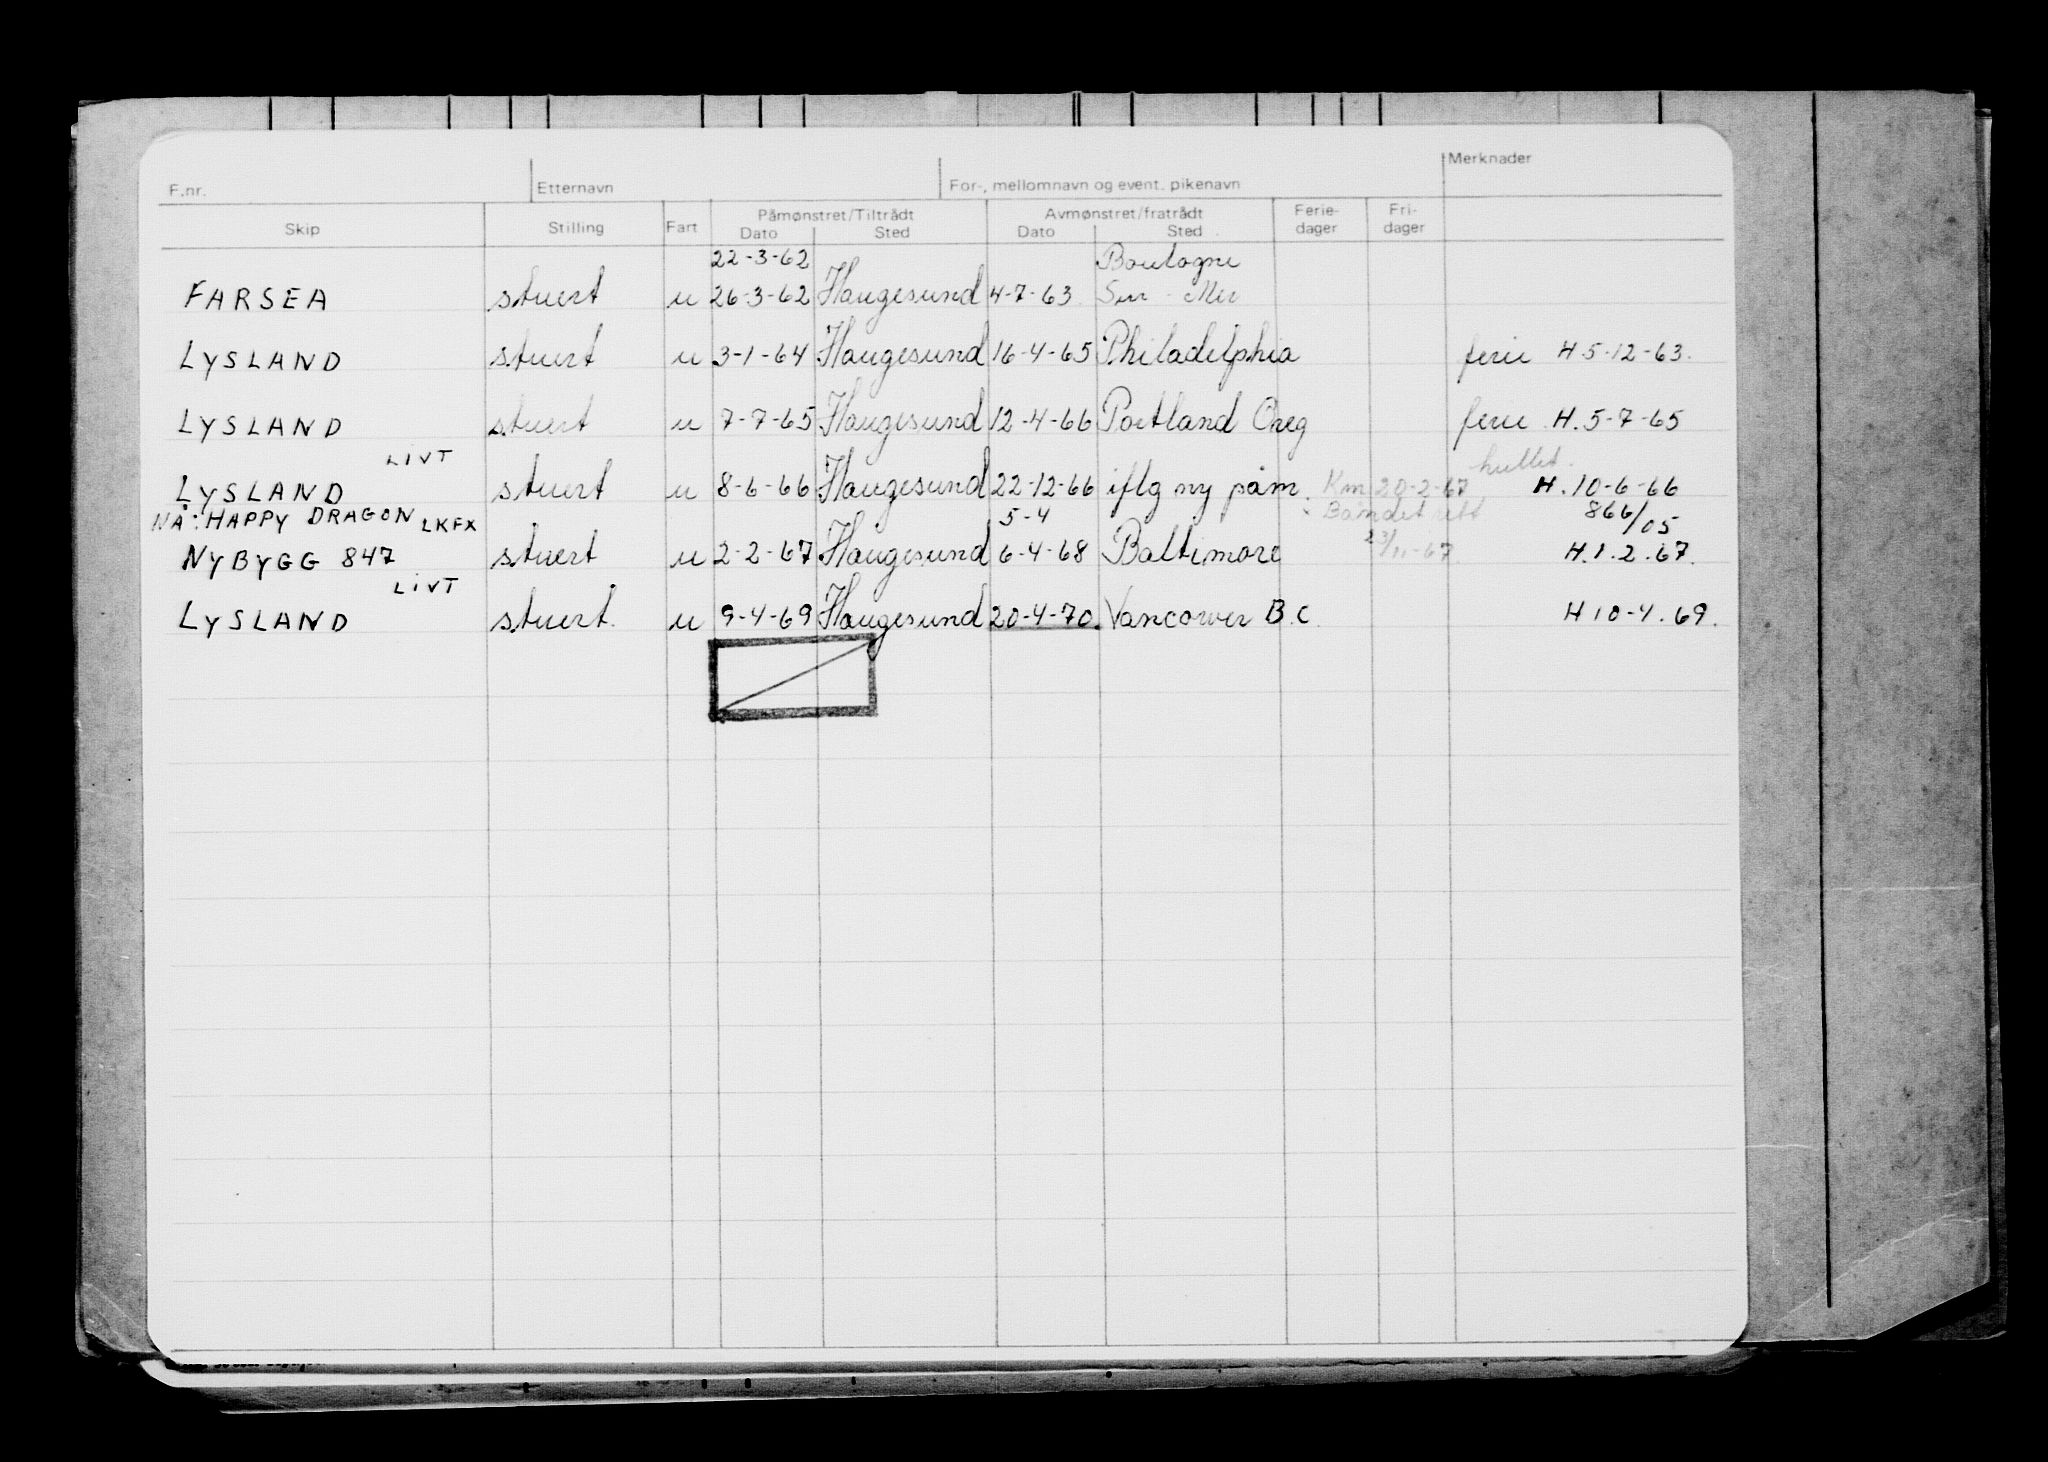 F.nr. Etternavn For-, mellomnavn og event. pikenavn Merknader
Skip Stilling Fart Påmønstret/Tiltrådt Avmønstret/fratrådt Ferie-dager Fri-dager
Dato Sted Dato Sted
22-3-62 Boulogne
FARSEA stuert u 26-3-62 Haugesund 4-7-63 Sur-Mer
LYSLAND stuert u 3-1-64 Haugesund 16-4-65 Philadelphia ferie H.5-12-63.
LYSLAND stuert u 7-7-65 Haugesund 12-4-66 Portland Oreg ferie H.5-7-65
LIVT hullet.
LYSLAND stuert u 8-6-66 Haugesund 22-12-66 iflg ny påm. Km 20-2-67 H.10-6-66
NÅ: HAPPY DRAGON LKFX 5-4 Båndet rett 866/05
NYBYGG 847 stuert u 2-2-67 Haugesund 6-4-68 Baltimore 23/11-67. H.1.2.67.
LIVT
LYSLAND stuert. u 9-4-69 Haugesund 20-4-70. Vancouver B.C. H 10-4.69.